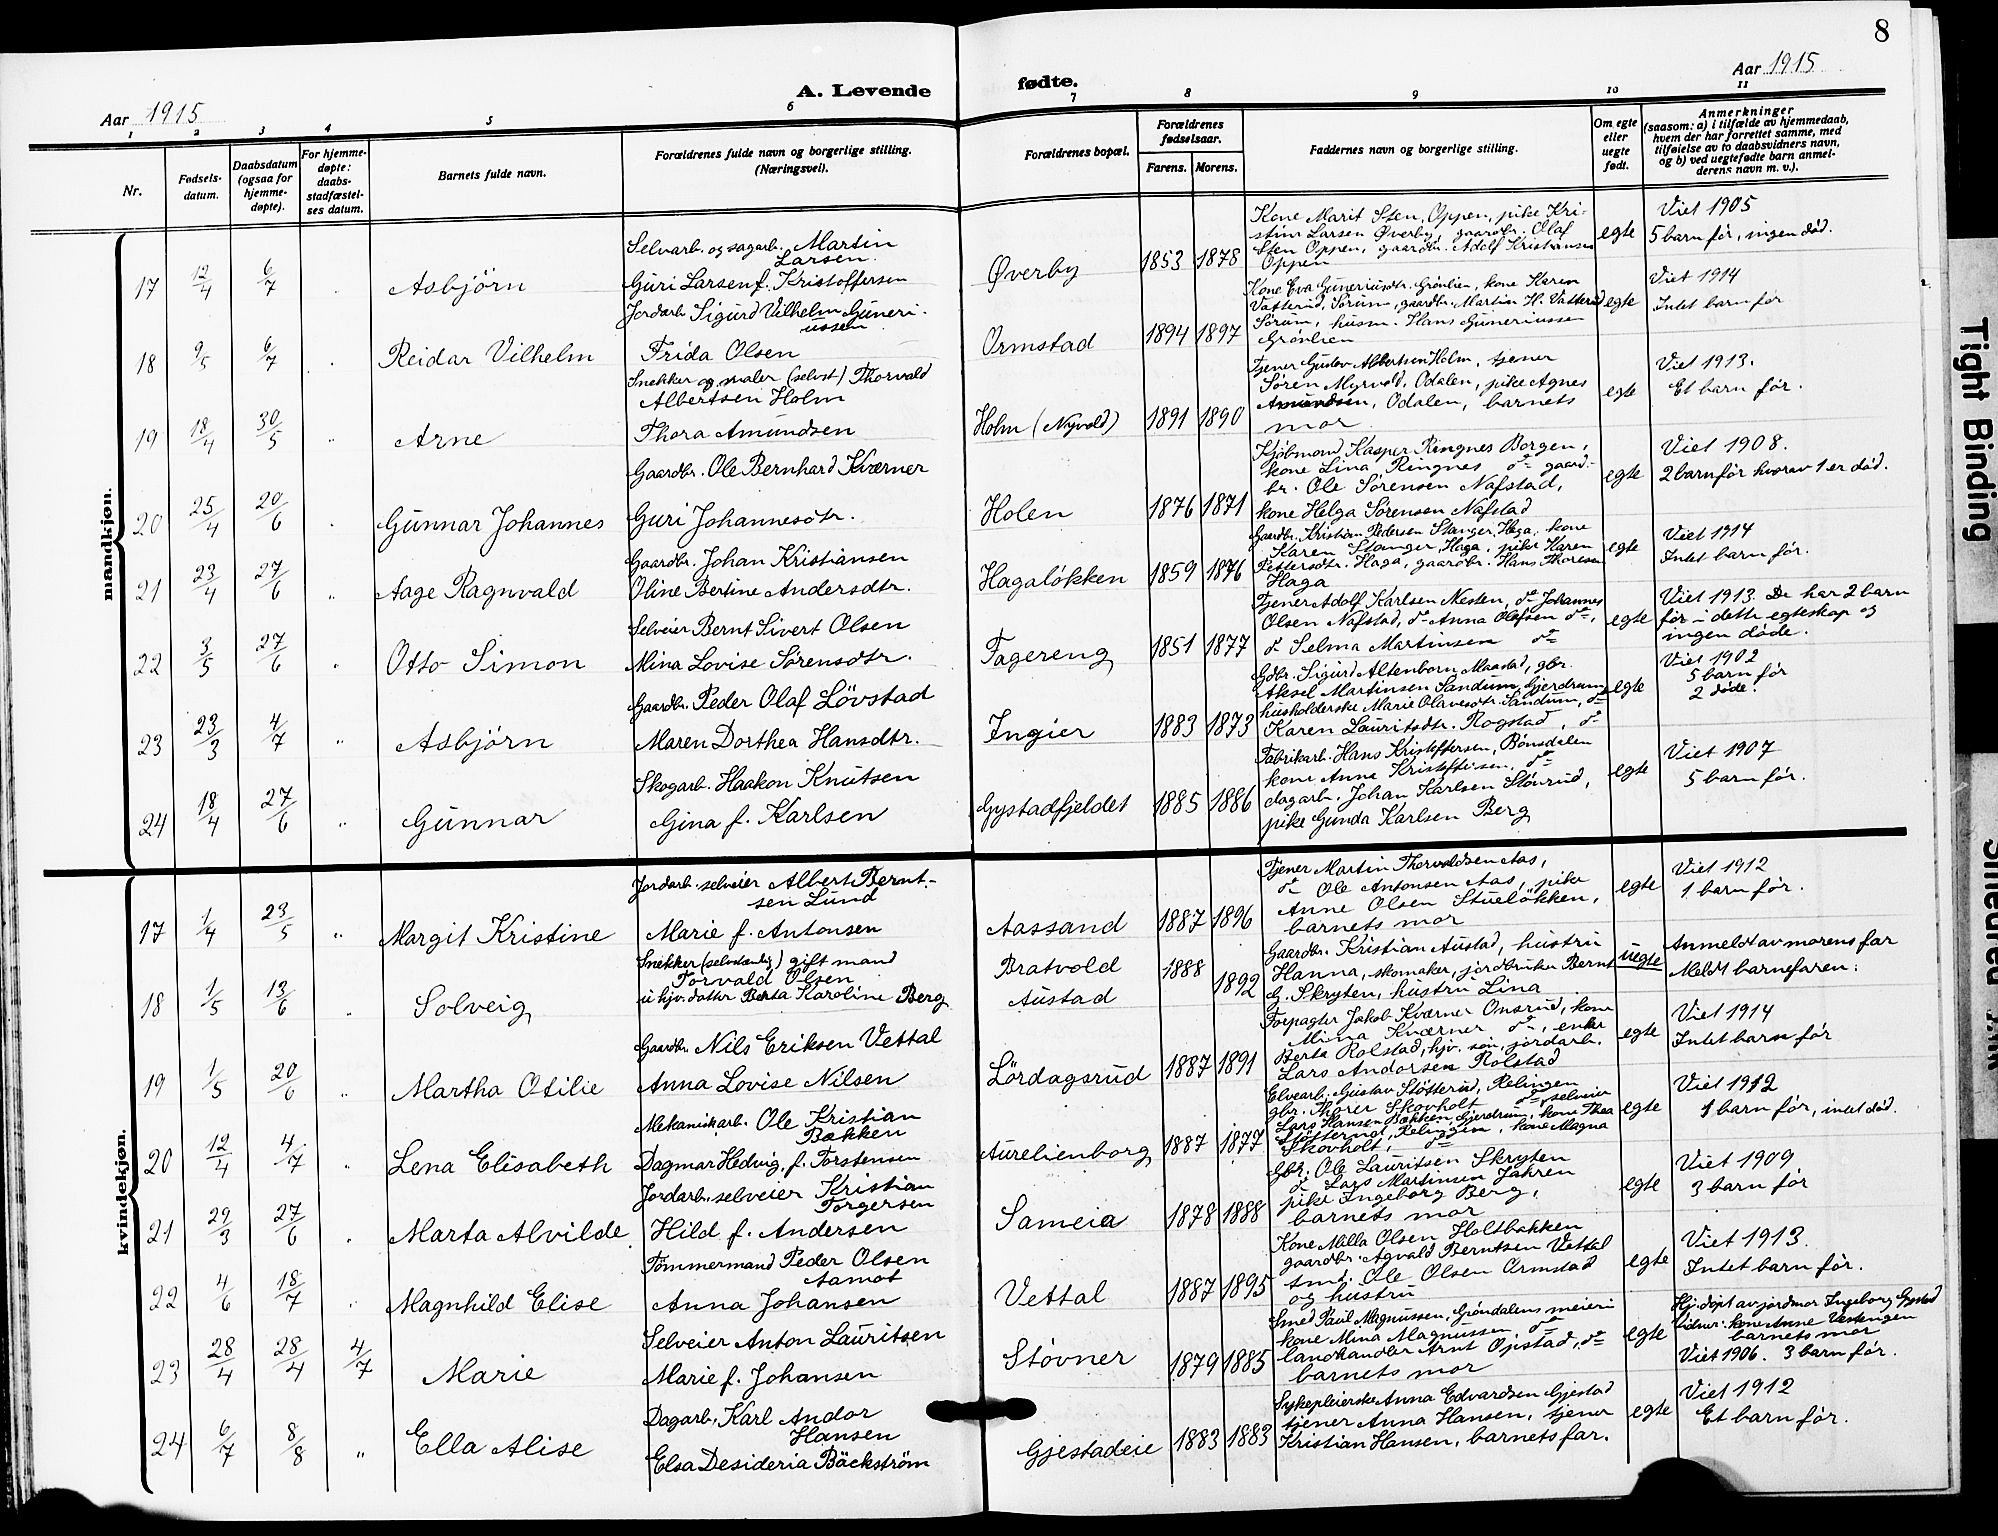 8
Aar 1915
A. Levende
fødte.
Aar 1915
1 2 3 4 5 6 7 8 9 10 11
Nr.
Fødsels-
datum.
Daabsdatum
(ogsaa for
hjemme-
døpte).
For hjemme-
døpte:
daabs-
stadfæstel-
ses datum.
Barnets fulde navn.
Forældrenes fulde navn og borgerlige stilling.
(Næringsvei).
Forældrenes bopæl.
Forældrenes
fødselsaar.
Farens. Morens.
Faddernes navn og borgerlige stilling.
Om egte
eller
uegte
født.
Anmerkninger
(saasom: a) i tilfælde av hjemmedaab,
hvem der har forrettet samme, med
tilføielse av to daabsvidners navn,
og b) ved uegtefødte barn anmel-
derens navn m. v.).
mandkjøn.
17 12/4 6/7 Asbjörn
Selvarb. og sagarb. Martin
Larsen.
Guri Larsen f. Kristoffersen
Øverby 1853 1878
Kone Marit Sten, Oppen, pike Kri-
stine Larsen Øverby, gaardbr. Olaf
Sten Oppen, gaardbr. Adolf Kristiansen
Oppen
egte
Viet 1905
5 barn før, ingen död.
18 9/5 6/7 Reidar Vilhelm
Jordarb. Sigurd Vilhelm Guneri-
ussen
Frida Olsen
Ormstad 1894 1897
Kone Eva Guneriusdtr. Grönlien, kone Karen
Vatterud, Sørum, gaardbr. Martin H. Vatterud
Sørum, husm. Hans Guneriussen
Grönlien
egte
Viet 1914
Intet barn før
19 18/4 30/5 " Arne
Snekker og maler (selvst) Thorvald
Albertsen Holm
Thora Amundsen
Holm (Nyvold) 1891 1890
Tjener Gustav Albertsen Holm, tjener
Søren Myrvold, Odalen, pike Agnes
Amundsen, Odalen, barnets
mor
egte
Viet 1913.
Et barn før.
20 25/4 20/6 Gunnar Johannes
Gaardbr. Ole Bernhard Kværner
Guri Johannesdtr.
Holen 1876 1871
Kjöbmand Kasper Ringnes Borgen,
kone Lina Ringnes do gaard-
br. Ole Sørensen Nafstad,
kone Helga Sørensen Nafstad
egte
Viet 1908.
2 barn før hvorav 1 er död.
21 23/4 27/6 " Aage Ragnvald
Gaardbr. Johan Kristiansen
Oline Bertine Andersdtr.
Hagalökken 1859 1876
Gaardbr. Kristian Pedersen Stanger, Haga, kone
Karen Stanger, Haga, pike Karen
Pettersdtr. Haga, gaardbr. Hans Thoresen
Haga
egte
Viet 1914
Intet barn før.
22 3/5 27/6 " Otto Simon
Selveier Bernt Sivert Olsen
Mina Lovise Sørensdtr.
Fagereng 1851 1877
Tjener Adolf Karlsen Nesten, do Johannes
Olsen Nafstad, do Anna Olafsen do,
do Selma Martinsen do
egte
Viet 1913. De har 2 barn
før i dette egteskap og
ingen døde.
23 23/3 4/7 " Asbjörn
Gaardbr. Peder Olaf Lövstad
Maren Dorthea Hansdtr.
Ingier 1883 1873
Gdbr. Sigurd Altenborn Maastad, gbr.
Aksel Martinsen Sandum, Gjerdrum,
husholderske Marie Olavesdtr. Sandum, do
Karen Lauritsdtr. Rogstad, do
egte
Viet 1902
5 barn før
2 døde.
24 18/4 27/6 " Gunnar
Skogarb. Haakon Knutsen
Gina f. Karlsen
Gystadfjeldet 1885 1886
Fabrikarb. Hans Kristoffersen, Bönsdalen
kone Anna Kristoffersen, do
dagarb. Johan Karlsen Stövrud,
pike Gunda Karlsen Berg
egte
Viet 1907
5 barn før.
kvindekjøn.
17 1/4 23/5 " Margit Kristine
Jordarb. selveier Albert Bernt-
sen Lund
Marie f. Antonsen
Aassand 1887 1896
Tjener Martin Thorvaldsen Aas,
do Ole Antonsen Aas, pike
Anne Olsen Stuelökken,
barnets mor
egte
Viet 1912
1 barn før.
18 1/5 13/6 " Solveig
Snekker (selvstændig) gift mand
Torvald Olsen
u hjv. datter Berta Karoline Berg
Bratvold
Austad
1888 1892
Gaardbr. Kristian Austad, hustru
Hanna, skomaker, jordbruker Bernt
G. Skryten, hustru Lina
uegte
Anmeldt av morens far
Meldt barnefaren:
19 1/5 20/6 " Martha Otilie
Gaardbr. Nils Eriksen Vettal
Anna Lovise Nilsen
Lördagsrud 1887 1891
Forpagter Jakob Kværner Onsrud, kone
Mina Kværner do, enke
Berta Rolstad, hjv. søn, jordarb.
Lars Andersen Rolstad
egte
Viet 1914
Intet barn før
20 12/4 4/7 " Lena Elisabeth
Mekaniskarb. Ole Kristian
Bækken
Dagmar Hedvig, f. Torstensen
Aurelienborg 1887 1877
Elvearb. Gustav Støtterud, Relingen
gbr. Thorer Skovholt do, selveier
Lars Hansen Bækken, Gjerdrum, kone Thea
Støtterud, Relingen, kone Magna
Skovholt, do
egte
Viet 1912
1 barn før, intet död.
21 29/3 27/6 Marta Alvilde
Jordarb., selveier Kristian
Torgersen
Hild f. Andersen
Sameia 1878 1888
Gbr. Ole Lauritsen Skryten
do Lars Martinsen Jahren
pike Ingeborg Berg,
barnets mor
egte
Viet 1909
3 barn før
22 4/6 18/7 Magnhild Elise
Tömmermand Peder Olsen
Aamot
Anna Johansen
Vettal 1887 1895
Kone Milla Olsen Holtbakken
gaardbr. Agvald Berntsen Vettal
smd. Ole Olsen Ormstad
og hustru
egte
Viet 1913
Intet barn før.
23 28/4 28/4 4/7 Marie
Selveier Anton Lauritsen
Marie f. Johansen
Støvner 1879 1885
Smed Paul Magnussen, Gröndalens meieri
kone Mina Magnussen, do
landhandler Arnt Opstad, do
barnets mor
egte
Hj. döpt av jordmor Ingeborg Gystad
Vidner: kone Anne Vestengen
barnets mor
Viet 1906. 3 barn før.
24 6/7 8/8 " Ella Alise
Dagarb. Karl Andor
Hansen
Elsa Desideria Bäckström
Gjestadeie 1883 1883
Sykepleierske Anna Edvardsen Gjestad
tjener Anna Hansen, tjener
Kristian Hansen, barnets far.
egte
Viet 1912
Et barn før.
Tight Binding